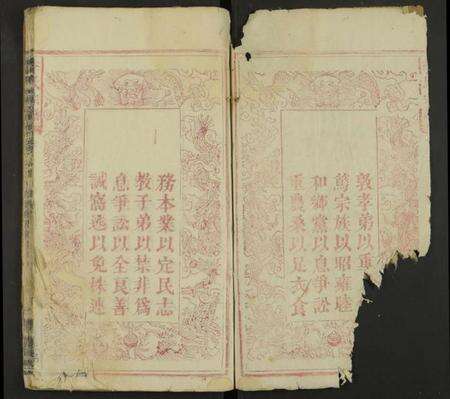 敦孝弟以重
篤宗族以昭雍睦
和鄉黨以息爭訟
重農桑以足衣食
務本業以定民志
教子弟以禁非為
息爭訟以全良善
誡窩逃以免株連